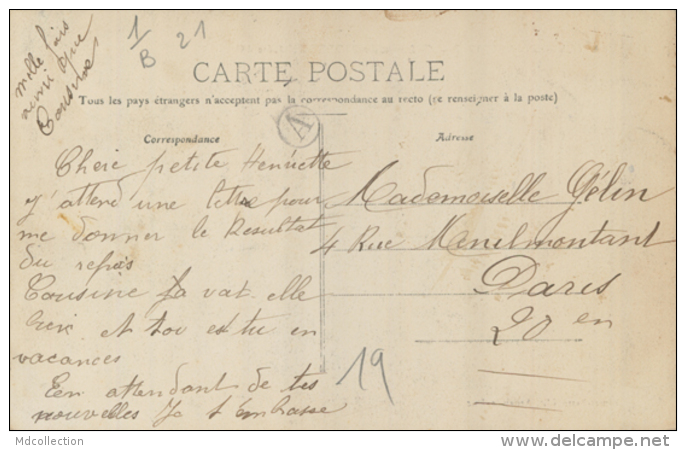 mille fois
ainsi que
Cousine
1
B
21
CARTE POSTALE
Tous les pays étrangers n'acceptent pas la correspondance au recto (se renseigner à la poste)
A
Correspondance
Adresse
Cherie petite Henriette
J'attend une lettre pour
me donner le Resultat
du repas
Cousine Ja vat elle
bien et toi es tu en
vacances
En attendant de tes
nouvelles Je t'embrasse
Mademoiselle Gélin
4 Rue Menilmontant
Paris
20 en
19
Mdcollection
www.delcampe.net